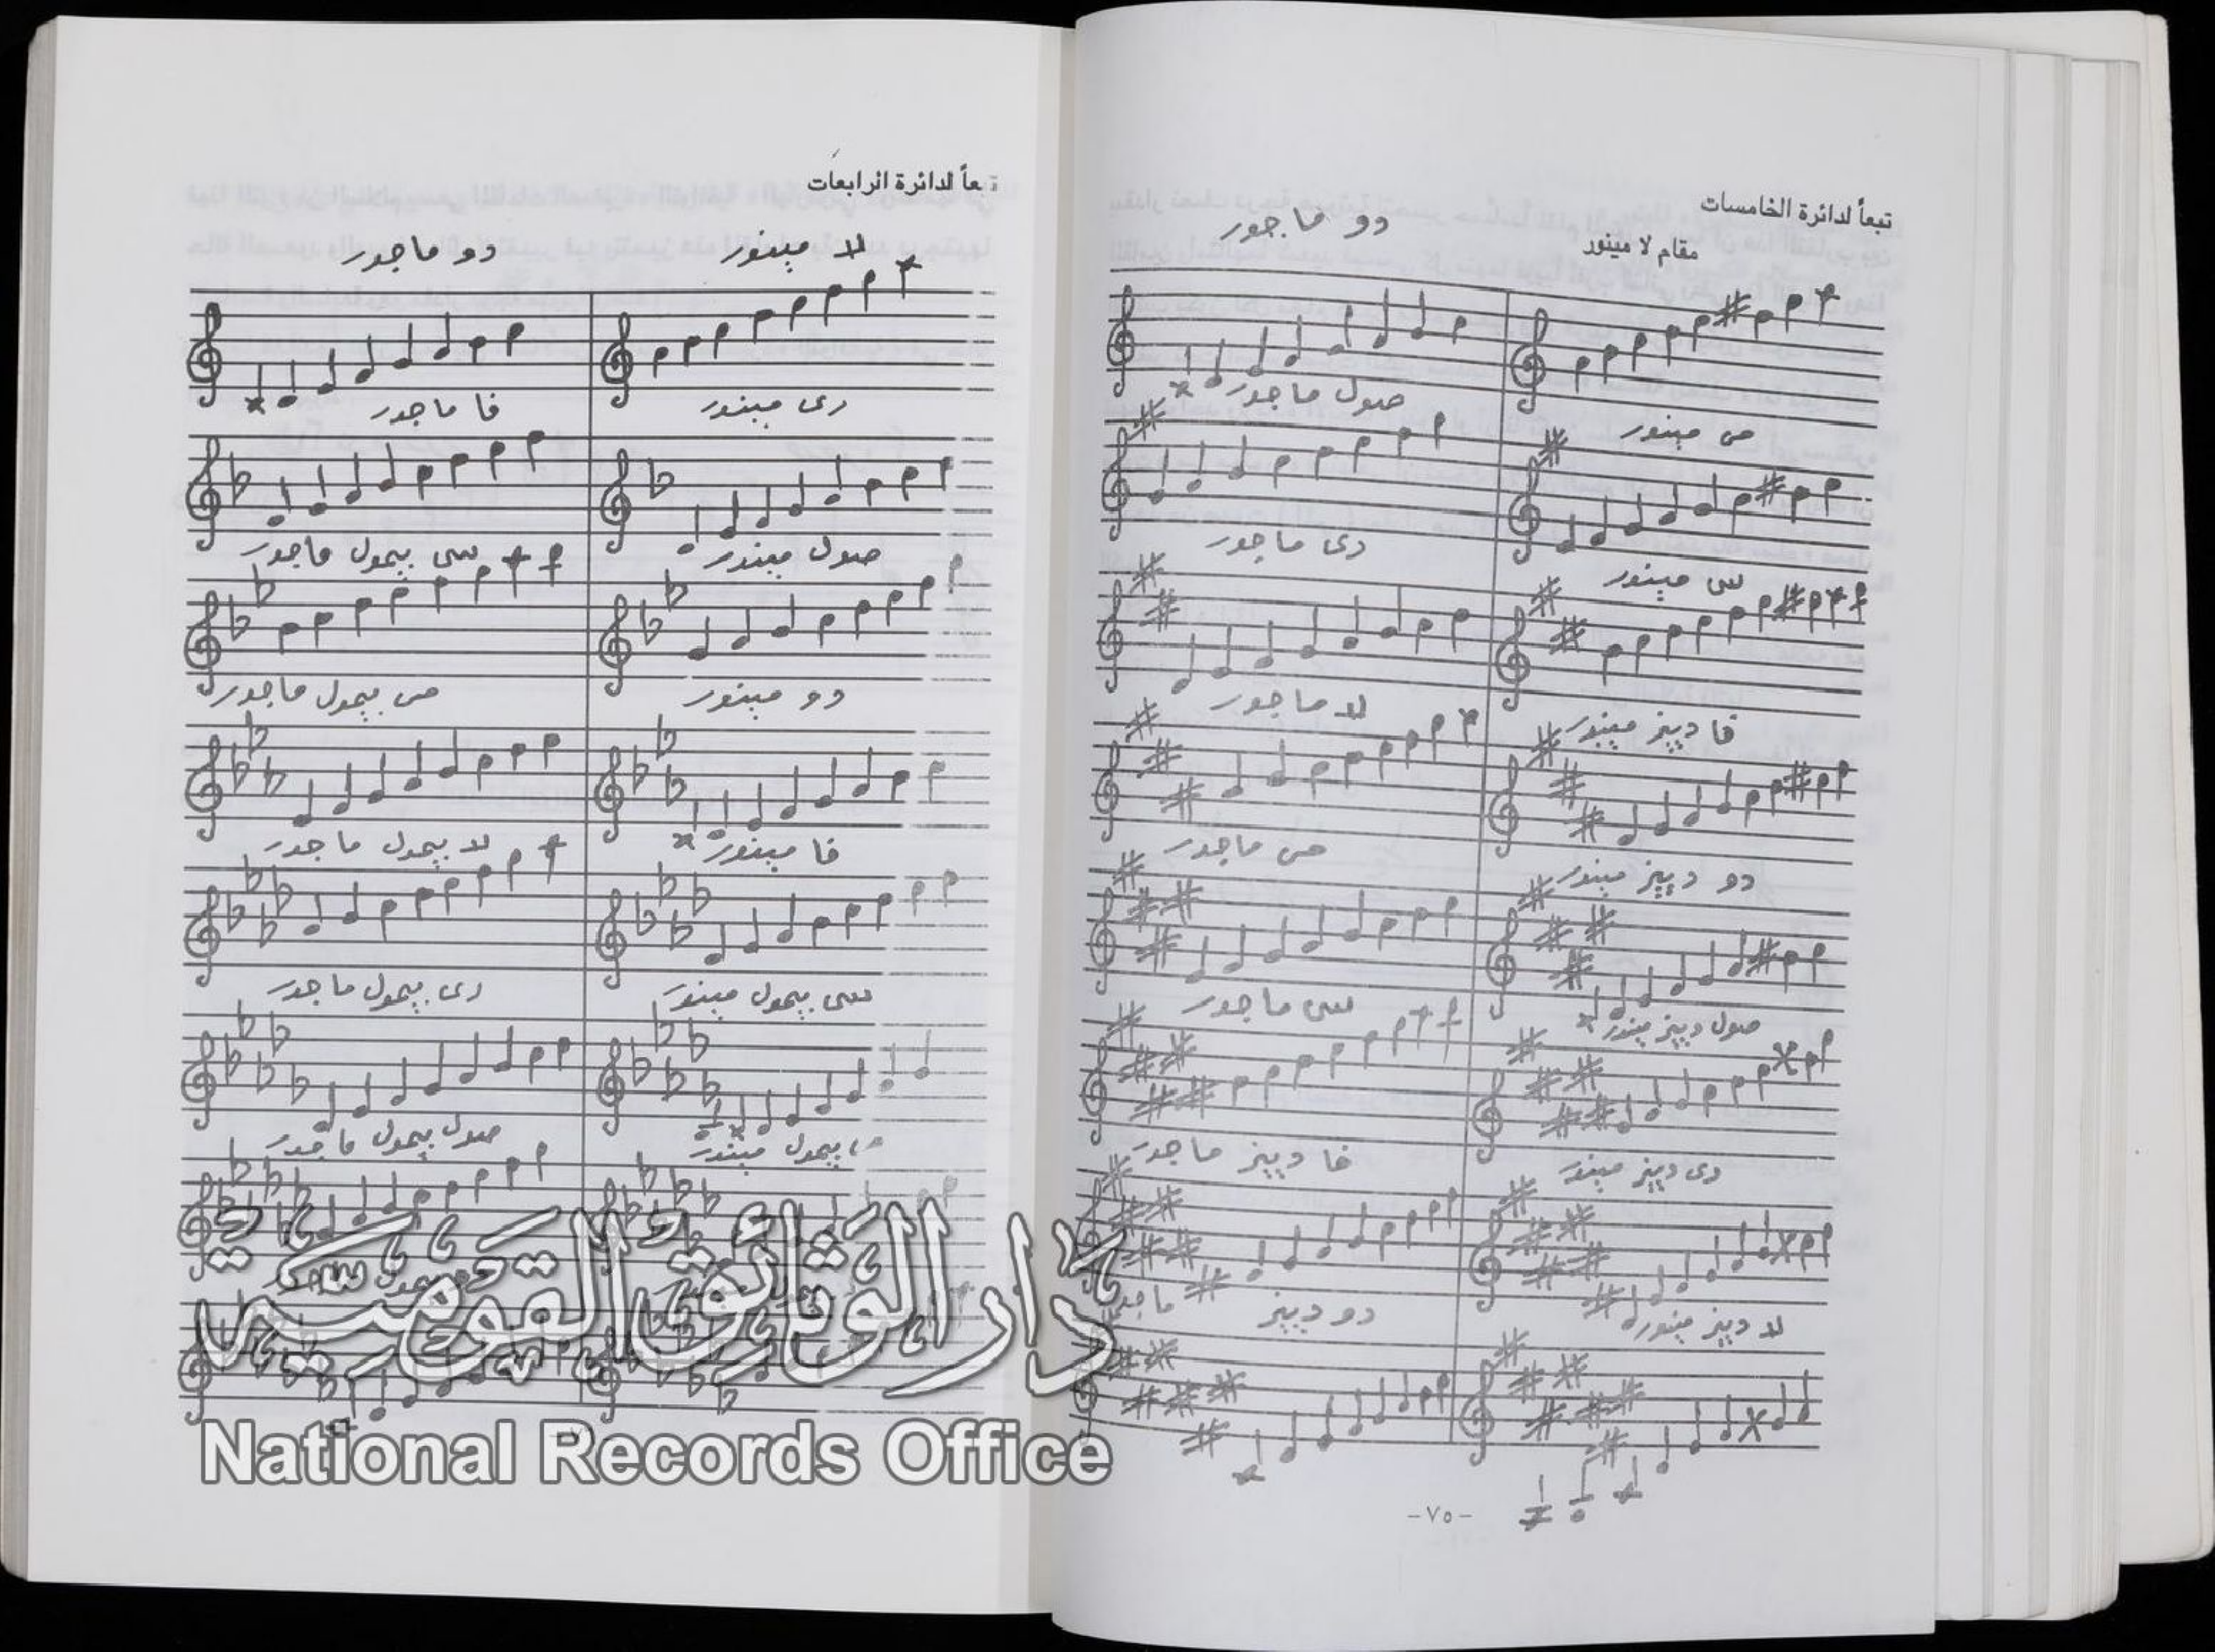 تبعاً لدائرة الخامسات
دو ماجور
مقام لا مينور
صول ماجور
مى مينور
رى ماجور
سى مينور
لا ماجور
فا دييز مينور
مى ماجور
دو دييز مينور
سى ماجور
صول دييز مينور
فا دييز ماجور
رى دييز مينور
دو دييز ماجور
لا دييز مينور
-٧٥-
تبعاً لدائرة الرابعات
لا مينور
دو ماجور
رى مينور
فا ماجور
صول مينور
سى بيمول ماجور
دو مينور
مى بيمول ماجور
فا مينور
لا بيمول ماجور
سى بيمول مينور
رى بيمول ماجور
بيمول مينور
صول بيمول ماجور
دار الوثائق القومية
National Records Office